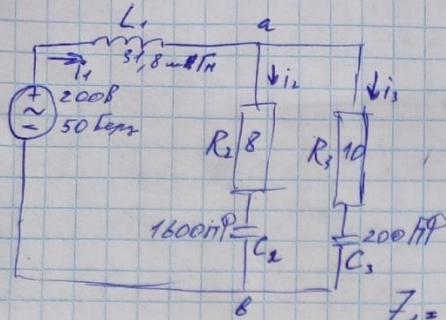 L₁
a
31,8 мкГн
I₁
↓ i₂
↓ i₃
+
200В
~
50 Герц
−
R₂ 8
R₃ 10
1600пФ
C₂
200пФ
C₃
в
Z₁=